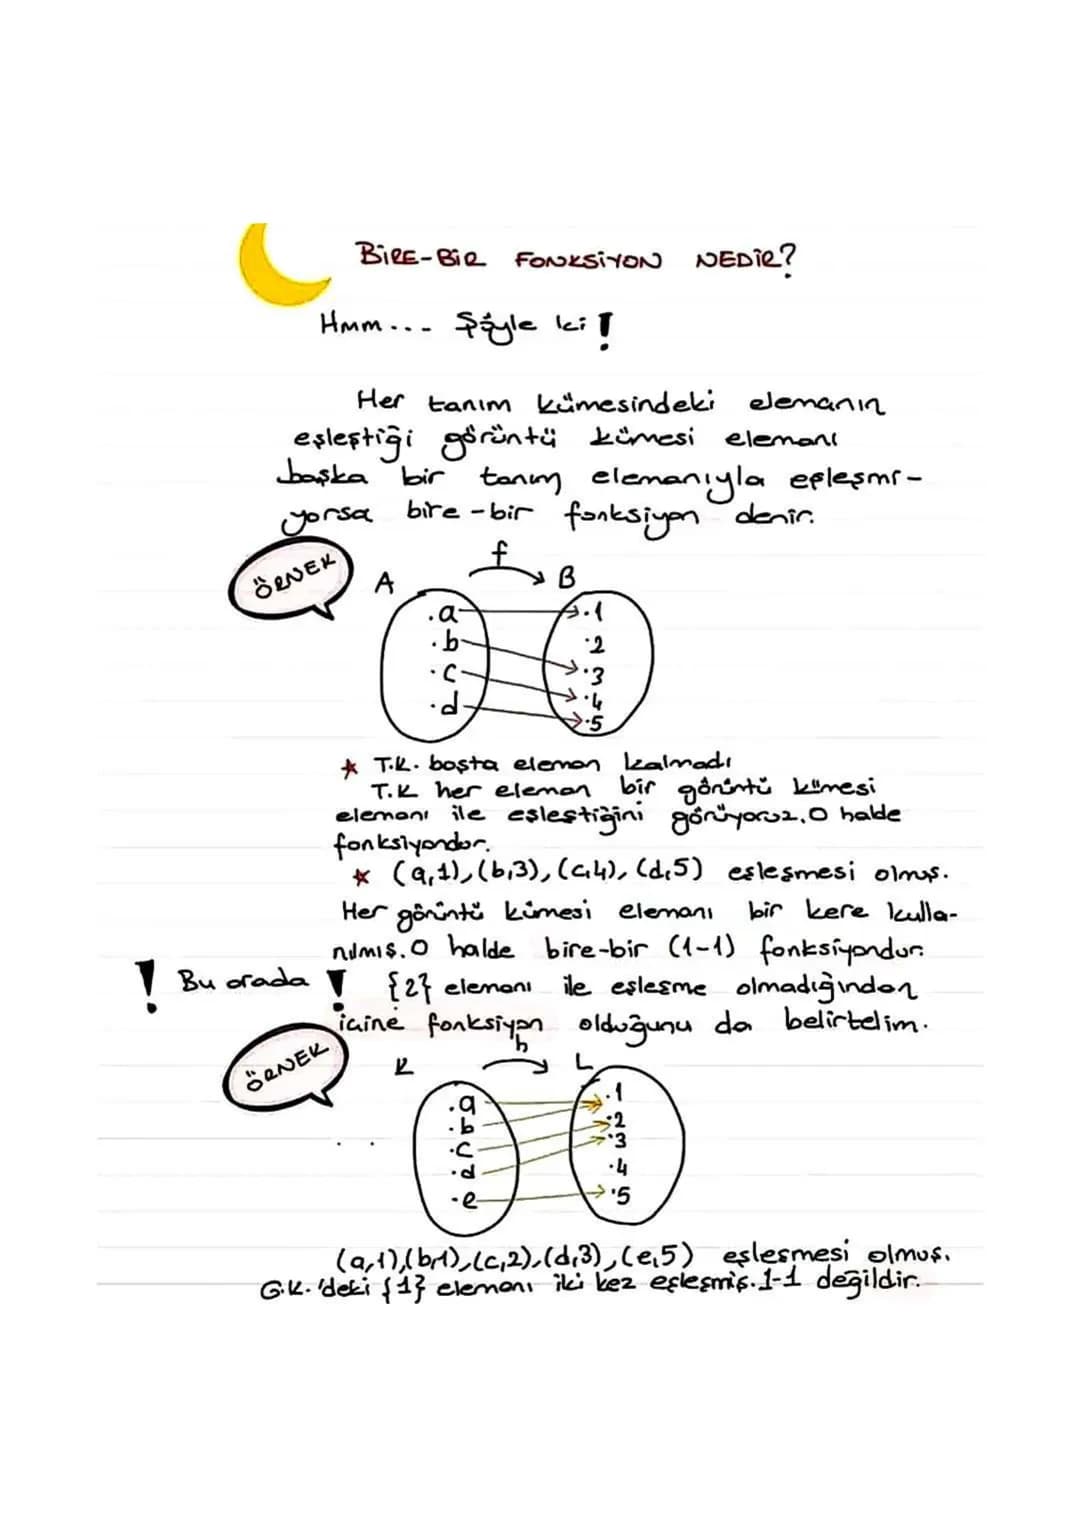 BİRE-BİR FONKSİYON NEDİR?
Hmm... Şöyle ki !
Her tanım kümesindeki elemanın
eşleştiği görüntü kümesi elemanı
başka bir tanım elemanıyla eşleşmi-
yorsa bire-bir fonksiyon denir.
ÖRNEK
f
A B
.a .1
.b .2
.c .3
.d .4
.5
* T.K. boşta eleman kalmadı
T.K her eleman bir görüntü kümesi
elemanı ile eşleştiğini görüyoruz. O halde
fonksiyondur.
* (a,1), (b,3), (c,4), (d,5) eşleşmesi olmuş.
Her görüntü kümesi elemanı bir kere kulla-
nılmış. O halde bire-bir (1-1) fonksiyondur.
! Bu arada ! {2} elemanı ile eşleşme olmadığından
içine fonksiyon olduğunu da belirtelim.
ÖRNEK
h
K L
.a .1
.b .2
.c .3
.d .4
.e .5
(a,1),(b,1),(c,2),(d,3),(e,5) eşleşmesi olmuş.
G.K.'deki {1} elemanı iki kez eşleşmiş. 1-1 değildir.